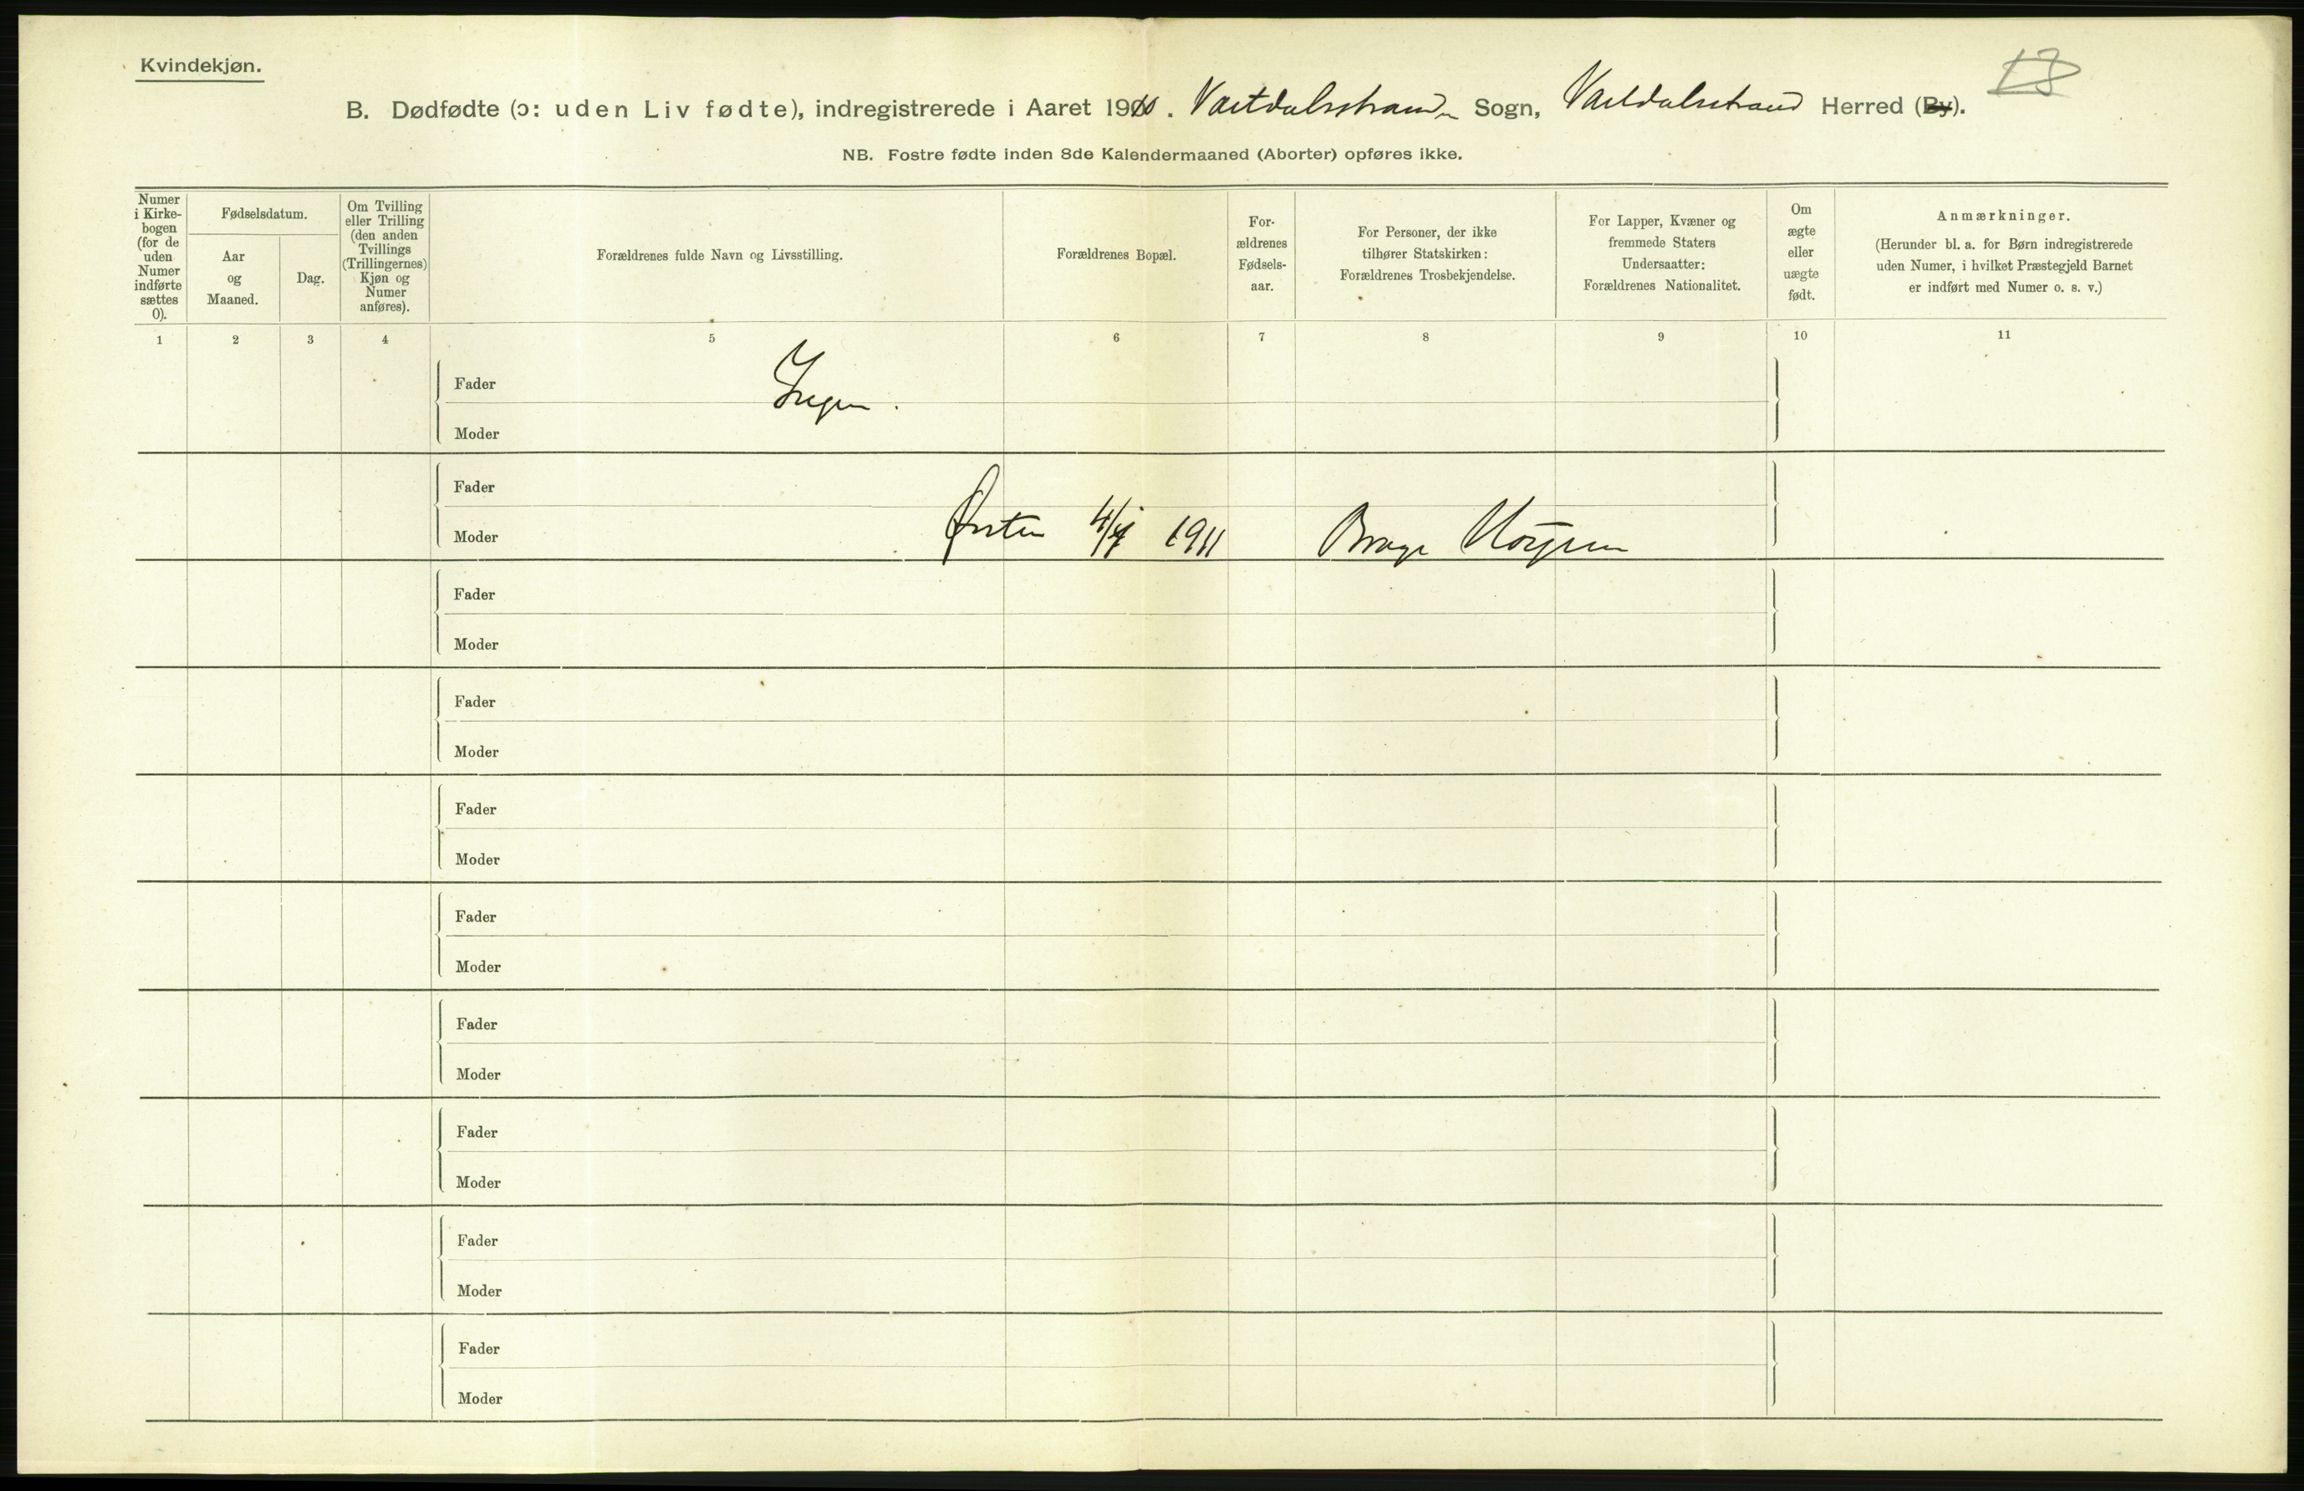 Kvindekjøn.
18
B. Dødfødte (ɔ: uden Liv fødte), indregistrerede i Aaret 1910. Vartdalsstrand Sogn, Vartdalsstrand Herred (By).
NB. Fostre fødte inden 8de Kalendermaaned (Aborter) opføres ikke.
Numer
i Kirke-
bogen
(for de
uden
Numer
indførte
sættes
0).
Fødselsdatum.
Aar
og
Maaned.
Dag.
Om Tvilling
eller Trilling
(den anden
Tvillings
(Trillingernes)
Kjøn og
Numer
anføres).
Forældrenes fulde Navn og Livsstilling.
Forældrenes Bopæl.
For-
ældrenes
Fødsels-
aar.
For Personer, der ikke
tilhører Statskirken:
Forældrenes Trosbekjendelse.
For Lapper, Kvæner og
fremmede Staters
Undersaatter:
Forældrenes Nationalitet.
Om
ægte
eller
uægte
født.
Anmærkninger.
(Herunder bl. a. for Børn indregistrerede
uden Numer, i hvilket Præstegjeld Barnet
er indført med Numer o. s. v.)
1 2 3 4 5 6 7 8 9 10 11
Fader
Ingen.
Moder
Fader
Moder Ørsten 1911
Fader
Moder
Fader
Moder
Fader
Moder
Fader
Moder
Fader
Moder
Fader
Moder
Fader
Moder
Fader
Moder